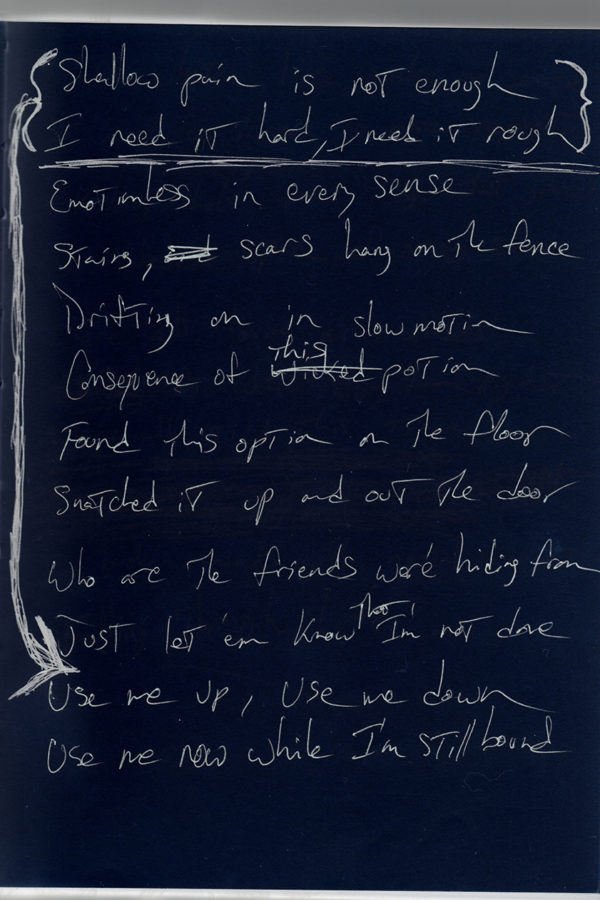 Shallow pain is not enough
I need it hard, I need it rough
Emotionless in every sense
Stairs, scars hang on the fence
Drifting on in slow motion
this
Consequence of wicked potion
Found this option on the floor
Snatched it up and out the door
Who are the friends we're hiding from
that
Just let 'em know I'm not done
Use me up, Use me down
Use me now while I'm still bound